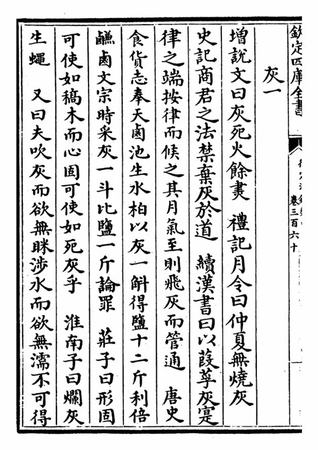 欽定四庫全書
卷三百六十
灰一
增說文曰灰死火餘㶳 禮記月令曰仲夏無燒灰
史記商君之法禁棄灰於道 續漢書曰以葭莩灰寔
律之端按律而候之其月氣至則飛灰而管通 唐史
食貨志奉天鹵池生水柏以灰一斛得鹽十二斤利倍
鹻鹵文宗時采灰一斗比鹽一斤論罪 莊子曰形固
可使如稿木而心固可使如死灰乎 淮南子曰爛灰
生蠅 又曰夫吹灰而欲無眯涉水而欲無濡不可得